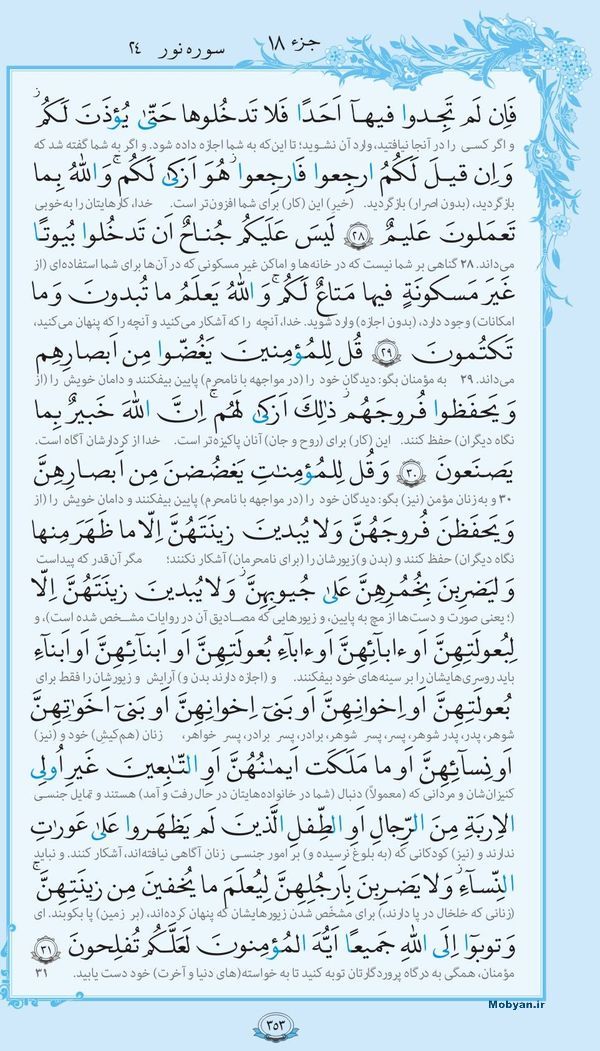 جزء ۱۸
سوره نور ۲۴
فَاِن لَم تَجِدوا فیهآ اَحَدًا فَلا تَدخُلوها حَتّیٰ یُؤذَنَ لَکُم
و اگر کسی را در آنجا نیافتید، وارد آن نشوید؛ تا این‌که به شما اجازه داده شود. و اگر به شما گفته شد که
وَ اِن قیلَ لَکُمُ ارجِعوا فَارجِعوا هُوَ اَزکیٰ لَکُم وَ اللهُ بِما
بازگردید، (بدون اصرار) بازگردید. (خیر) این (کار) برای شما افزون‌تر است. خدا، کارهایتان را به‌خوبی
تَعمَلونَ عَلیمٌ ﴿۲۸﴾ لَیسَ عَلَیکُم جُناحٌ اَن تَدخُلوا بُیوتًا
می‌داند. ۲۸ گناهی بر شما نیست که در خانه‌ها و اماکن غیر مسکونی که در آن‌ها برای شما استفاده‌ای (از
غَیرَ مَسکونَةٍ فیها مَتاعٌ لَکُم وَ اللهُ یَعلَمُ ما تُبدونَ وَ ما
امکانات) وجود دارد، (بدون اجازه) وارد شوید. خدا، آنچه را که آشکار می‌کنید و آنچه را که پنهان می‌کنید،
تَکتُمونَ ﴿۲۹﴾ قُل لِلمُؤمِنینَ یَغُضّوا مِن اَبصارِهِم
می‌داند. ۲۹ به مؤمنان بگو: دیدگان خود را (در مواجهه با نامحرم) پایین بیفکنند و دامان خویش را (از
وَ یَحفَظوا فُروجَهُم ذٰلِکَ اَزکیٰ لَهُم اِنَّ اللهَ خَبیرٌ بِما
نگاه دیگران) حفظ کنند. این (کار) برای (روح و جان) آنان پاکیزه‌تر است. خدا از کردارشان آگاه است.
یَصنَعونَ ﴿۳۰﴾ وَ قُل لِلمُؤمِنٰتِ یَغضُضنَ مِن اَبصارِهِنَّ
۳۰ و به زنان مؤمن (نیز) بگو: دیدگان خود را (در مواجهه با نامحرم) پایین بیفکنند و دامان خویش را (از
وَ یَحفَظنَ فُروجَهُنَّ وَ لا یُبدینَ زینَتَهُنَّ اِلّا ما ظَهَرَ مِنها
نگاه دیگران) حفظ کنند و (بدن و) زیورشان را (برای نامحرمان) آشکار نکنند؛ مگر آن‌قدر که پیداست
وَ لیَضرِبنَ بِخُمُرِهِنَّ عَلیٰ جُیوبِهِنَّ وَ لا یُبدینَ زینَتَهُنَّ اِلّا
(؛ یعنی صورت و دست‌ها از مچ به پایین، و زیورهایی که مصادیق آن در روایات مشخص شده است)، و
لِبُعولَتِهِنَّ اَو ءابآئِهِنَّ اَو ءابآءِ بُعولَتِهِنَّ اَو اَبنآئِهِنَّ اَو اَبنآءِ
باید روسری‌هایشان را بر سینه‌های خود بیفکنند. و (اجازه دارند بدن و) آرایش و زیورشان را فقط برای
بُعولَتِهِنَّ اَو اِخوانِهِنَّ اَو بَنیٓ اِخوانِهِنَّ اَو بَنیٓ اَخَوٰتِهِنَّ
شوهر، پدر، پدر شوهر، پسر، پسر شوهر، برادر، پسر برادر، پسر خواهر، زنان (هم‌کیش) خود و (نیز)
اَو نِسآئِهِنَّ اَو ما مَلَکَت اَیمٰنُهُنَّ اَوِ التّٰبِعینَ غَیرِ اُولِی
کنیزان‌شان و مردانی که (معمولاً) دنبال (شما در خانواده‌هایتان در حال رفت و آمد) هستند و تمایل جنسی
الاِربَةِ مِنَ الرِّجالِ اَوِ الطِّفلِ الَّذینَ لَم یَظهَروا عَلیٰ عَورٰتِ
ندارند و (نیز) کودکانی که (به بلوغ نرسیده و) بر امور جنسی زنان آگاهی نیافته‌اند، آشکار کنند. و نباید
النِّسآءِ وَ لا یَضرِبنَ بِاَرجُلِهِنَّ لِیُعلَمَ ما یُخفینَ مِن زینَتِهِنَّ
(زنانی که خلخال در پا دارند،) برای مشخّص شدن زیورهایشان که پنهان کرده‌اند، (بر زمین) پا بکوبند. ای
وَ توبوٓا اِلَی اللهِ جَمیعًا اَیُّهَ المُؤمِنونَ لَعَلَّکُم تُفلِحونَ ﴿۳۱﴾
مؤمنان، همگی به درگاه پروردگارتان توبه کنید تا به خواسته(های دنیا و آخرت) خود دست یابید. ۳۱
Mobyan.ir
۳۵۳